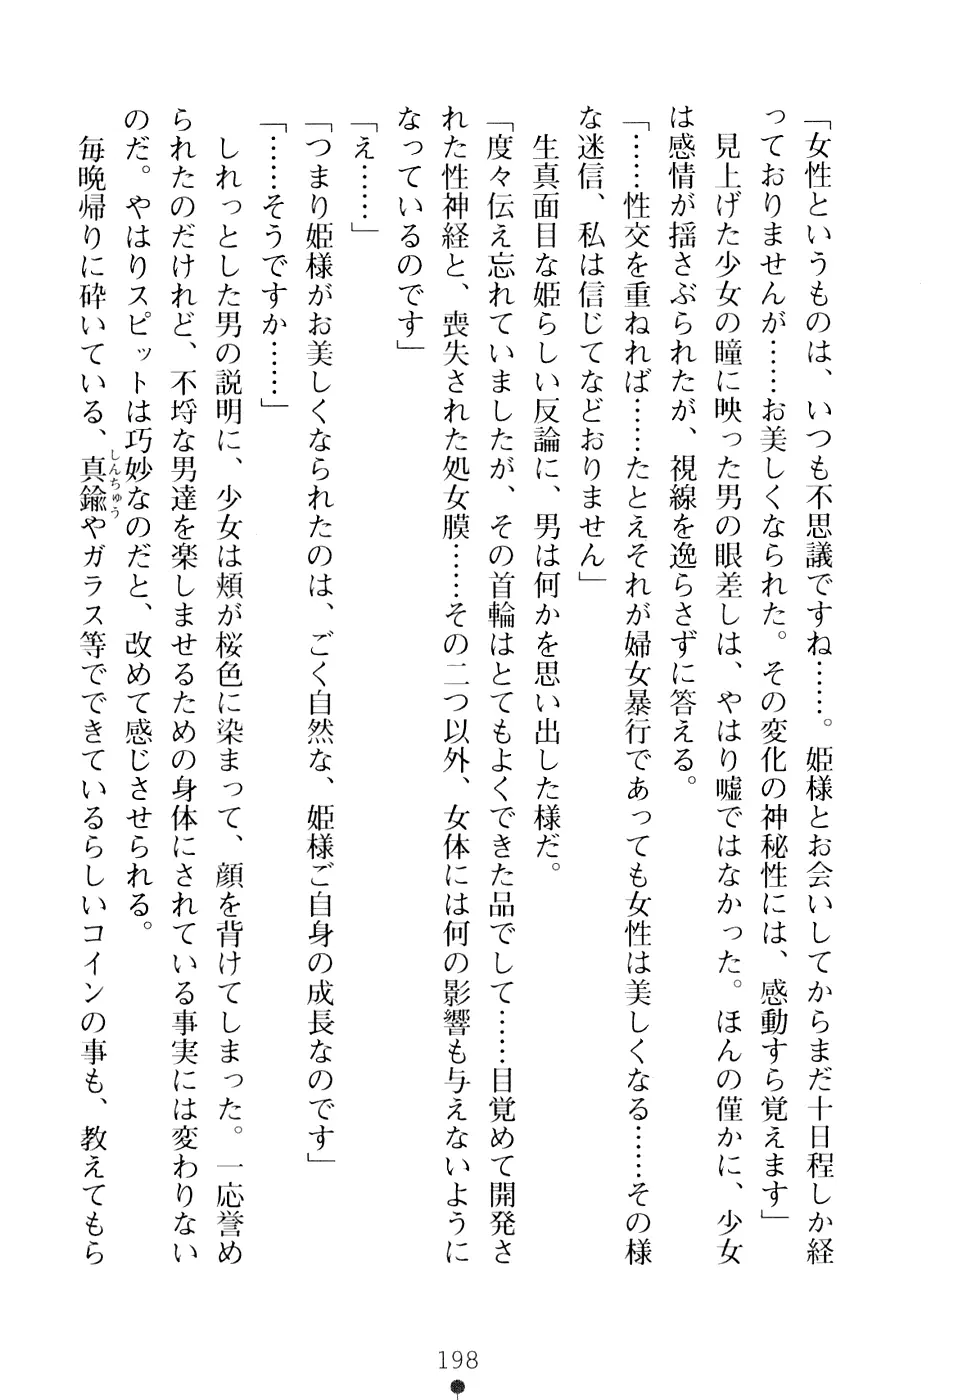 「女性というものは、いつも不思議ですね……。姫様とお会いしてからまだ十日程しか経
っておりませんが……お美しくなられた。その変化の神秘性には、感動すら覚えます」
見上げた少女の瞳に映った男の眼差しは、やはり嘘ではなかった。ほんの僅かに、少女
は感情が揺さぶられたが、視線を逸らさずに答える。
「……性交を重ねれば……たとえそれが婦女暴行であっても女性は美しくなる……その様
な迷信、私は信じてなどおりません」
生真面目な姫らしい反論に、男は何かを思い出した様だ。
「度々伝え忘れていましたが、その首輪はとてもよくできた品でして……目覚めて開発さ
れた性神経と、喪失された処女膜……その二つ以外、女体には何の影響も与えないように
なっているのです」
「え……」
「つまり姫様がお美しくなられたのは、ごく自然な、姫様ご自身の成長なのです」
「……そうですか……」
しれっとした男の説明に、少女は頬が桜色に染まって、顔を背けてしまった。一応誉め
られたのだけれど、不埒な男達を楽しませるための身体にされている事実には変わりない
のだ。やはりスピットは巧妙なのだと、改めて感じさせられる。
毎晩帰りに砕いている、真鍮しんちゅうやガラス等でできているらしいコインの事も、教えてもら
198